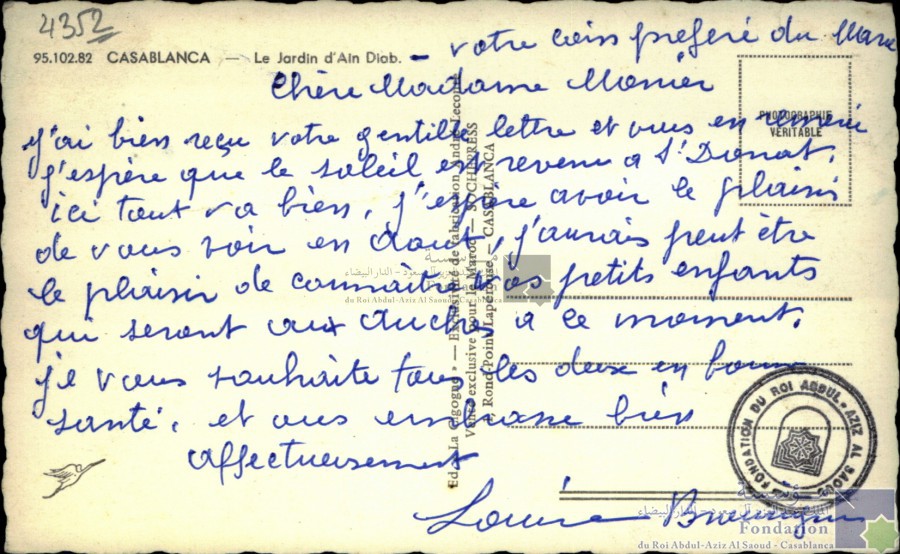 4352
95.102.82 CASABLANCA — Le Jardin d'Aïn Diab. — votre coin préféré du Maroc
Chère Madame Monier
J'ai bien reçu votre gentille lettre et vous en remercie
j'espère que le soleil est revenu a St Donat.
ici tout va bien, j'espère avoir le plaisir
de vous voir en Aout, j'aurais peut être
le plaisir de connaître vos petits enfants
qui seront aux à ce moment.
je vous souhaite tous les deux en bonne
santé, et vous embrasse bien
affectueusement
Louise
PHOTOGRAPHIE
VÉRITABLE
Ed. « La Cigogne » — Exclusivité de fabrication André Leconte
Vente exclusive pour le Maroc — SOCHEPRESS
Rond-Point Lapérouse — CASABLANCA
FONDATION DU ROI ABDUL-AZIZ AL SAOUD
مؤسسة
الملك عبد العزيز آل سعود - الدار البيضاء
du Roi Abdul-Aziz Al Saoud - Casablanca
مؤسسة
الملك عبد العزيز آل سعود - الدار البيضاء
Fondation
du Roi Abdul-Aziz Al Saoud - Casablanca